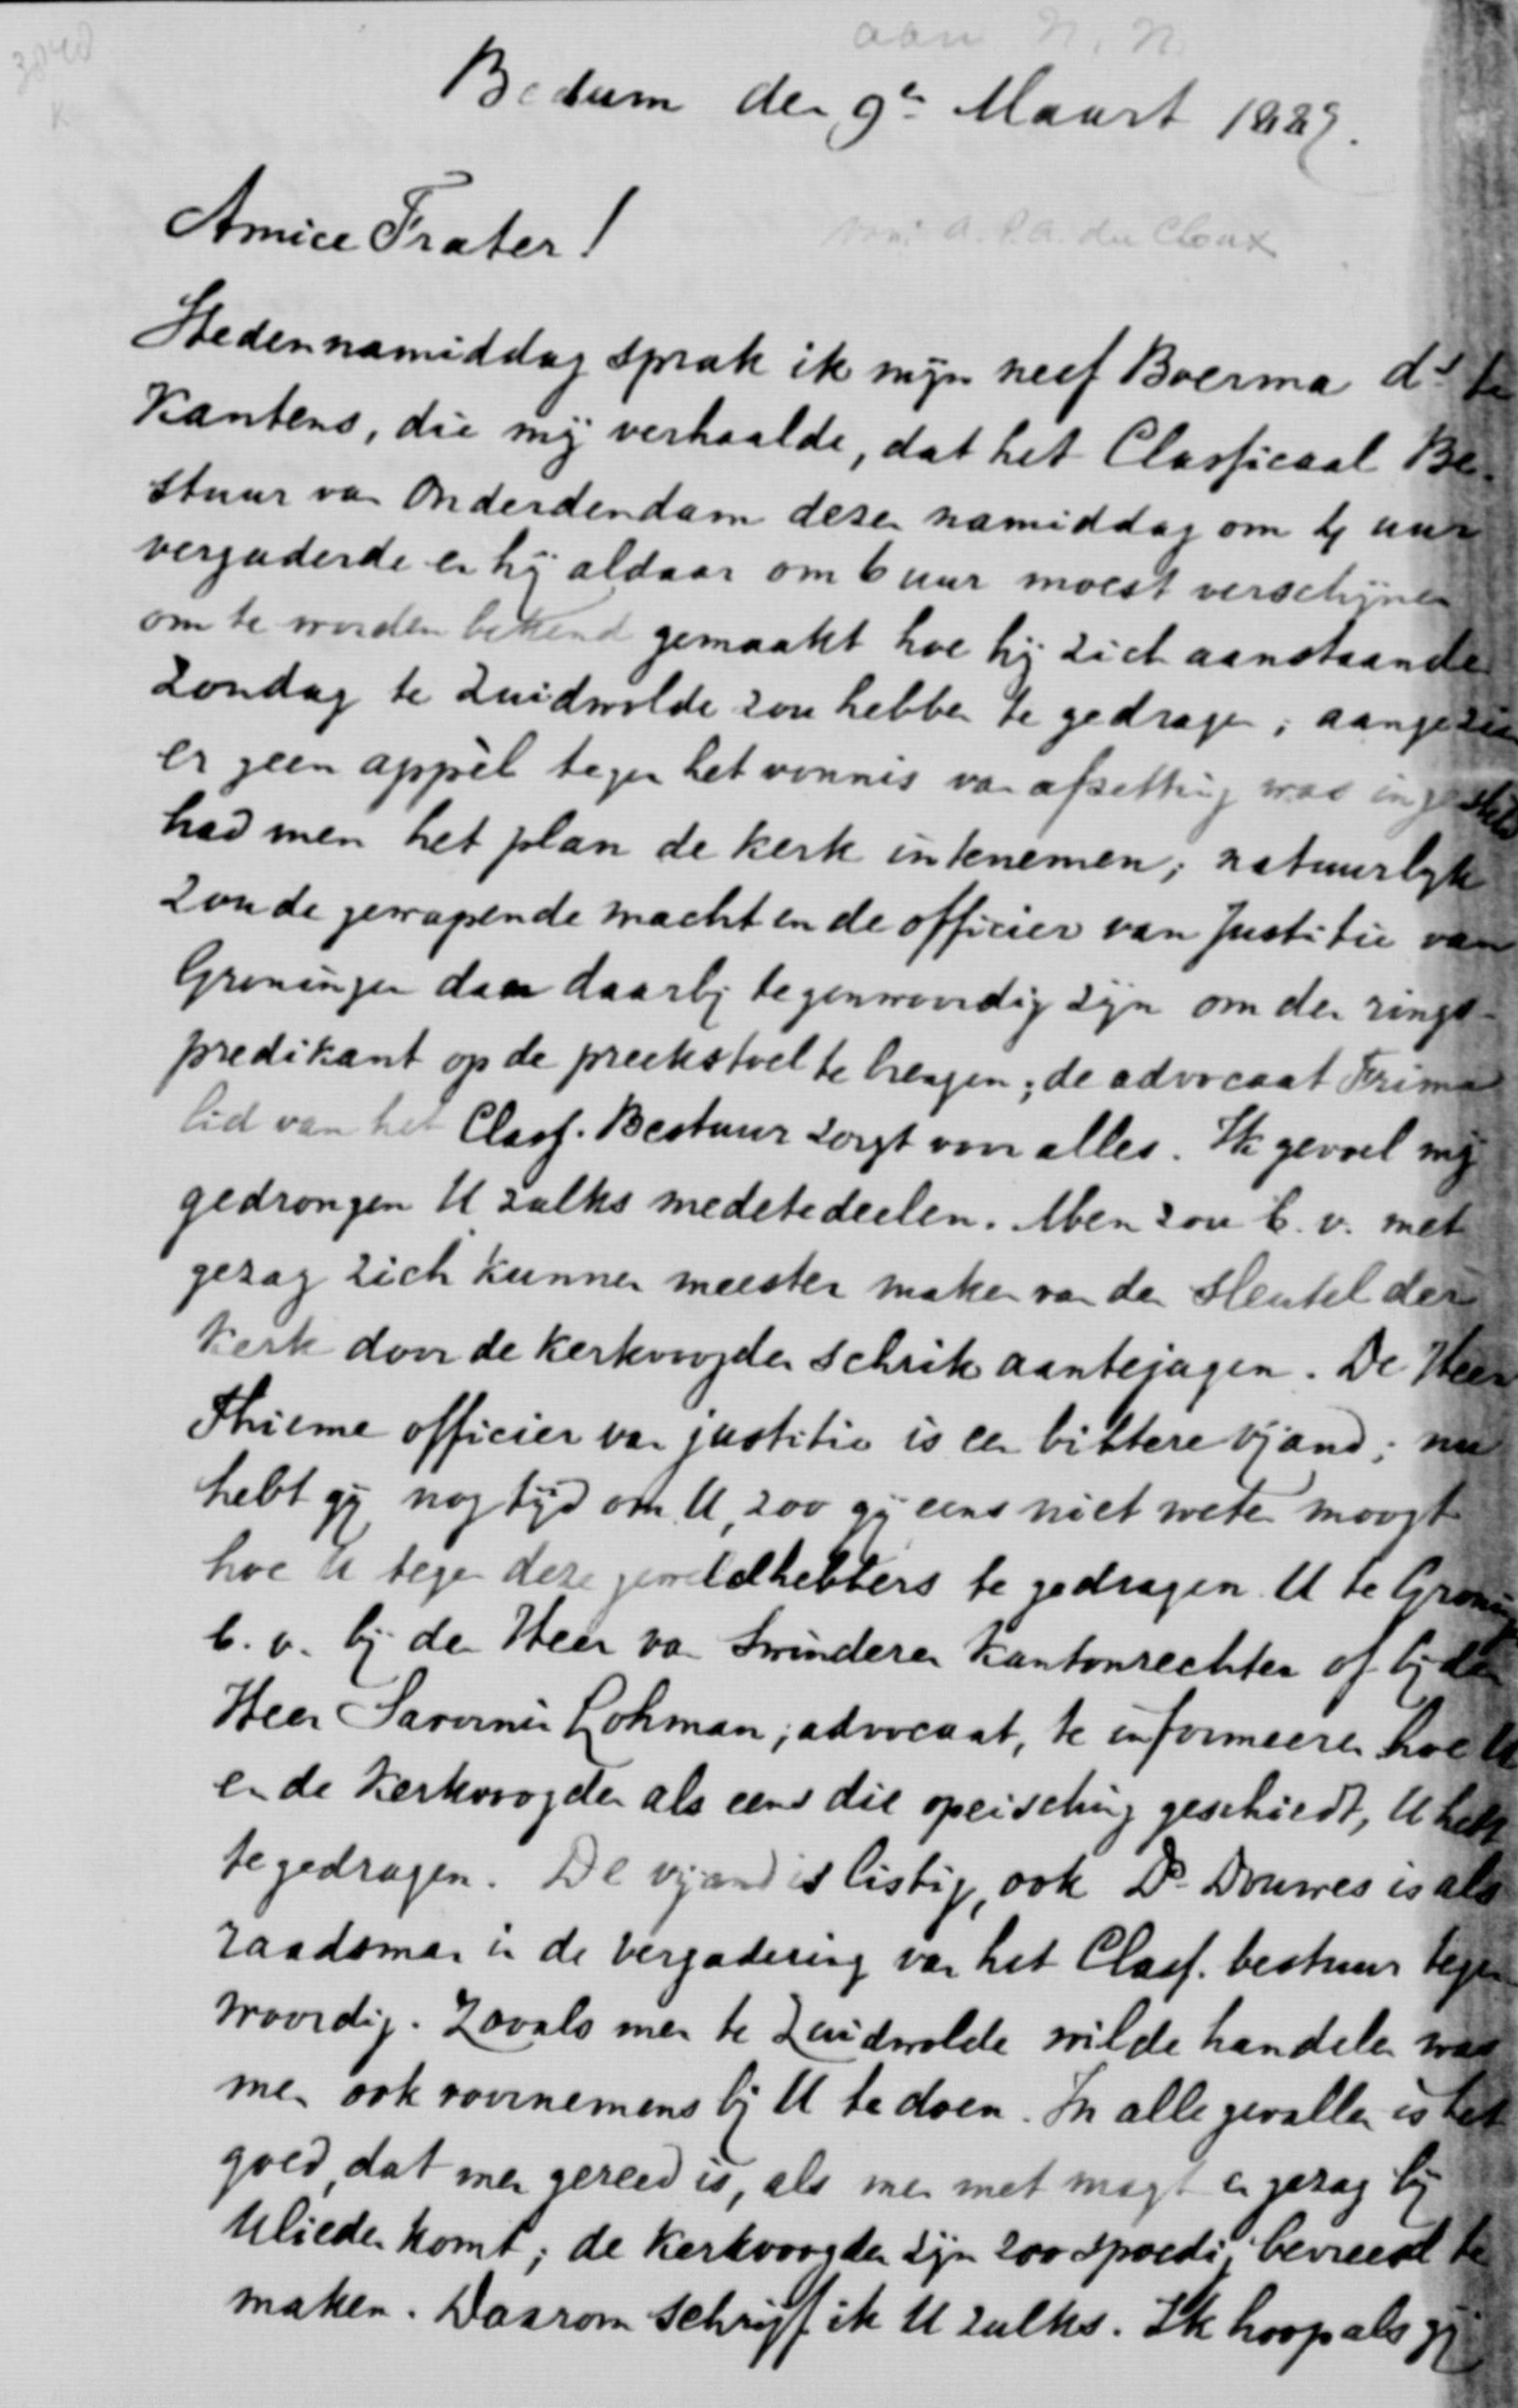 3040
K
aan N. N.
Bedum den 9en Maart 1889.
Amice Frater!
van: A. P. A. du Cloux
Hedennamiddag sprak ik mijn neef Boerma ds te
Kantens, die mij verhaalde, dat het Classicaal Be-
stuur van Onderdendam dezen namiddag om 4 uur
vergaderde en hij aldaar om 6 uur moest verschijnen
om te worden bekend gemaakt hoe hij zich aanstaande
Zondag te Zuidwolde zou hebben te gedragen; aangezien
er geen appèl tegen het vonnis van afzetting was ingesteld
had men het plan de kerk intenemen; natuurlyk
zou de gewapende macht en de officier van Justitie van
Groningen dan daarbij tegenwoordig zijn om den rings-
predikant op de preekstoel te brengen; de advocaat Frima
lid van het Class. Bestuur zorgt voor alles. Ik gevoel mij
gedrongen U zulks medetedeelen. Men zou b. v. met
gezag zich kunnen meester maken van den sleutel der
kerk door de kerkvoogden schrik aantejagen. De Heer
Thieme officier van justitie is een bittere vijand; nu
hebt gij nog tijd om U, zoo gij eens niet weten moogt
hoe U tegen deze geweldhebbers te gedragen U te Groning
b. v. bij den Heer van Swinderen Kantonrechter of bij den
Heer Savornin Lohman, advocaat, te informeeren hoe U
en de Kerkvoogden als eens die opeisching geschiedt, U hebt
te gedragen. De vijand is listig, ook Ds Douwes is als
raadsman in de vergadering van het Class. bestuur tegen
woordig. Zooals men te Zuidwolde wilde handelen was
men ook voornemens bij U te doen. In alle gevallen is het
goed, dat men gereed is, als men met magt en gezag bij
Ulieden komt; de kerkvoogden zijn zoo spoedig bevreesd te
maken. Daarom schrijf ik U zulks. Ik hoop als gij